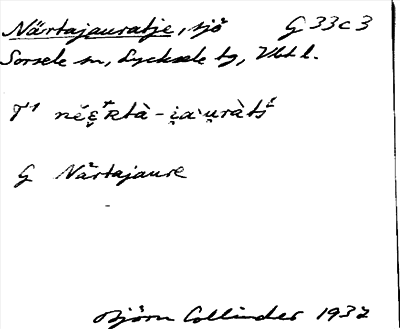 Närtajauratje, sjö G 33c3
Sorsele sn, Lycksele tg, Vbt l.
G Närtajaure
Björn Collinder 1937